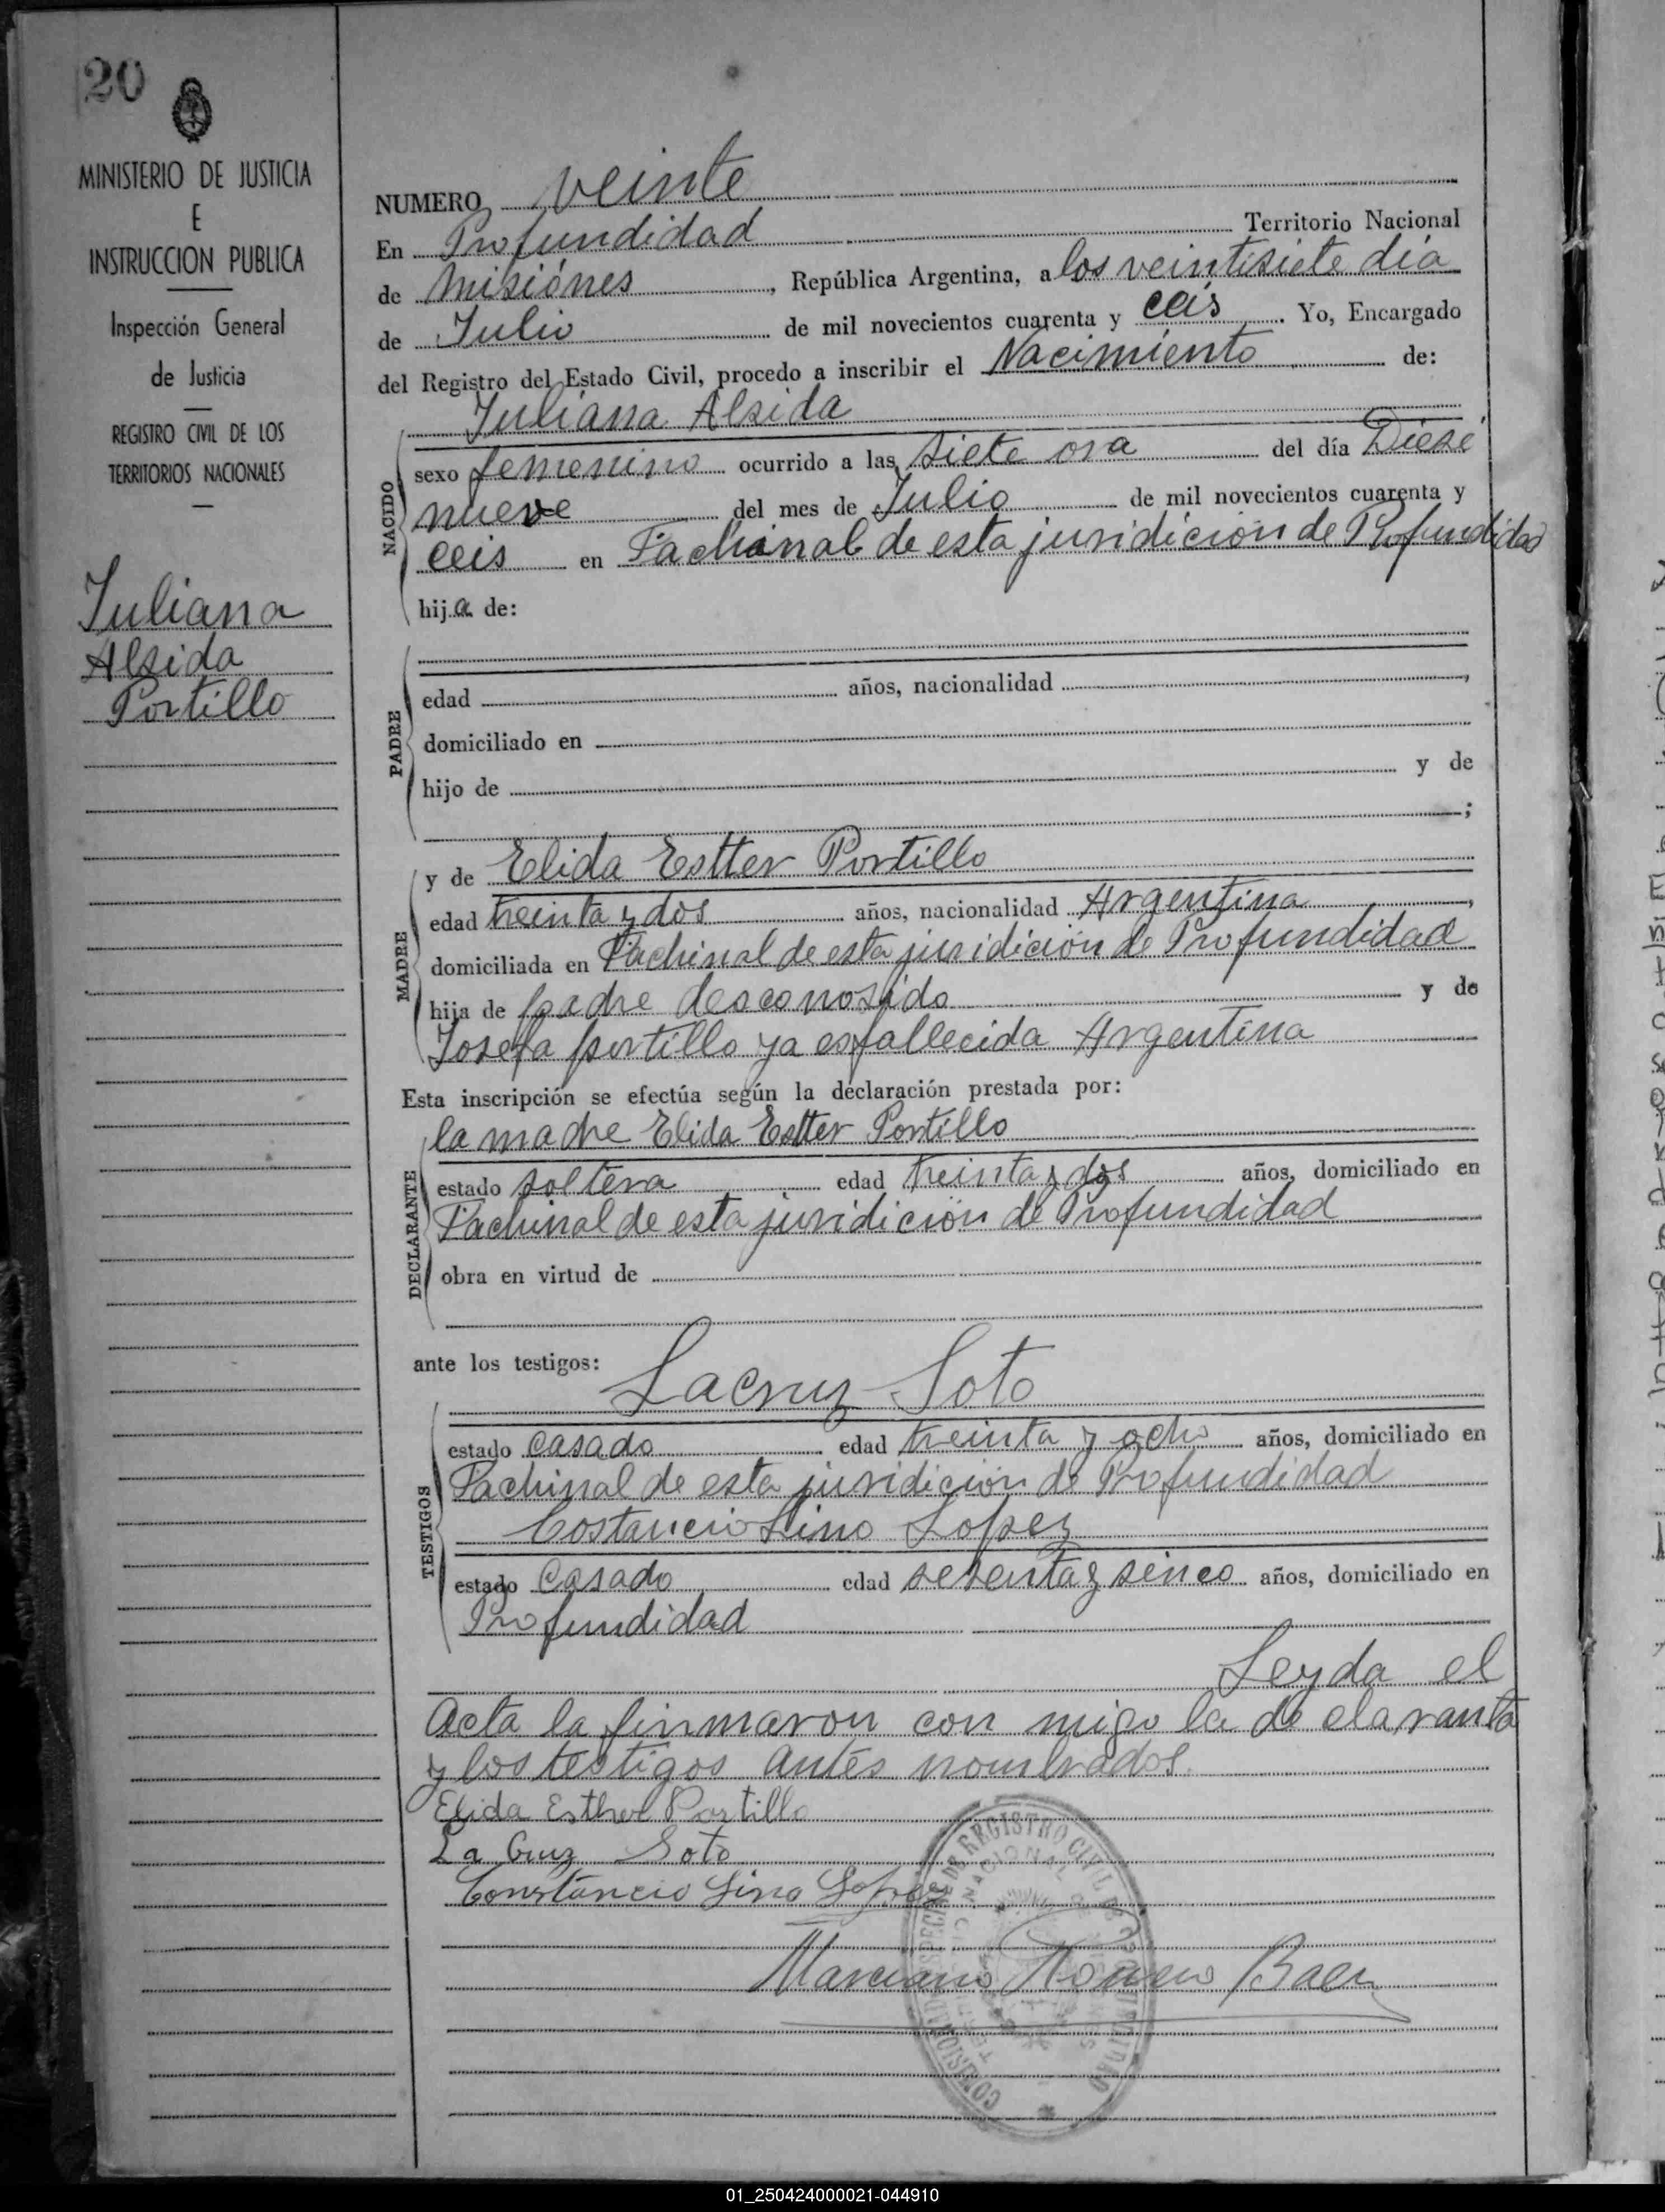 20
MINISTERIO DE JUSTICIA
E
INSTRUCCION PUBLICA
Inspección General
de Justicia
REGISTRO CIVIL DE LOS
TERRITORIOS NACIONALES
Juliana
Alsida
Portillo
NUMERO veinte
En Profundidad Territorio Nacional
de Misiónes, República Argentina, a los veintisiete día
de Julio de mil novecientos cuarenta y ceis. Yo, Encargado
del Registro del Estado Civil, procedo a inscribir el Nacimiento de:
Juliana Alsida
NACIDO
sexo femenino ocurrido a las siete ora del día Diese
nueve del mes de Julio de mil novecientos cuarenta y
ceis en Fachinal de esta juridicion de Profundidad
hija de:
PADRE
edad años, nacionalidad ,
domiciliado en
hijo de y de
;
MADRE
y de Elida Estter Portillo
edad treinta y dos años, nacionalidad Argentina,
domiciliada en Fachinal de esta juridicion de Profundidad
hija de padre desconosido y de
Josefa portillo ya es fallecida Argentina
Esta inscripción se efectúa según la declaración prestada por:
la madre Elida Estter Portillo
DECLARANTE
estado soltera edad treinta y dos años, domiciliado en
Fachinal de esta juridicion de Profundidad
obra en virtud de
ante los testigos:
Lacruz Soto
TESTIGOS
estado casado edad treinta y ocho años, domiciliado en
Fachinal de esta juridicion de Profundidad
Costancio Lino Lopez
estado Casado edad sesenta y sinco años, domiciliado en
Profundidad
Leyda el
Acta la finmaron con migo la de claranta
y los testigos antes nombrados.
Elida Esther Portillo
La Cruz Soto
Constancio Lino Lopez
Marciano Romero Baez
REGISTRO CIVIL
01_250424000021-044910